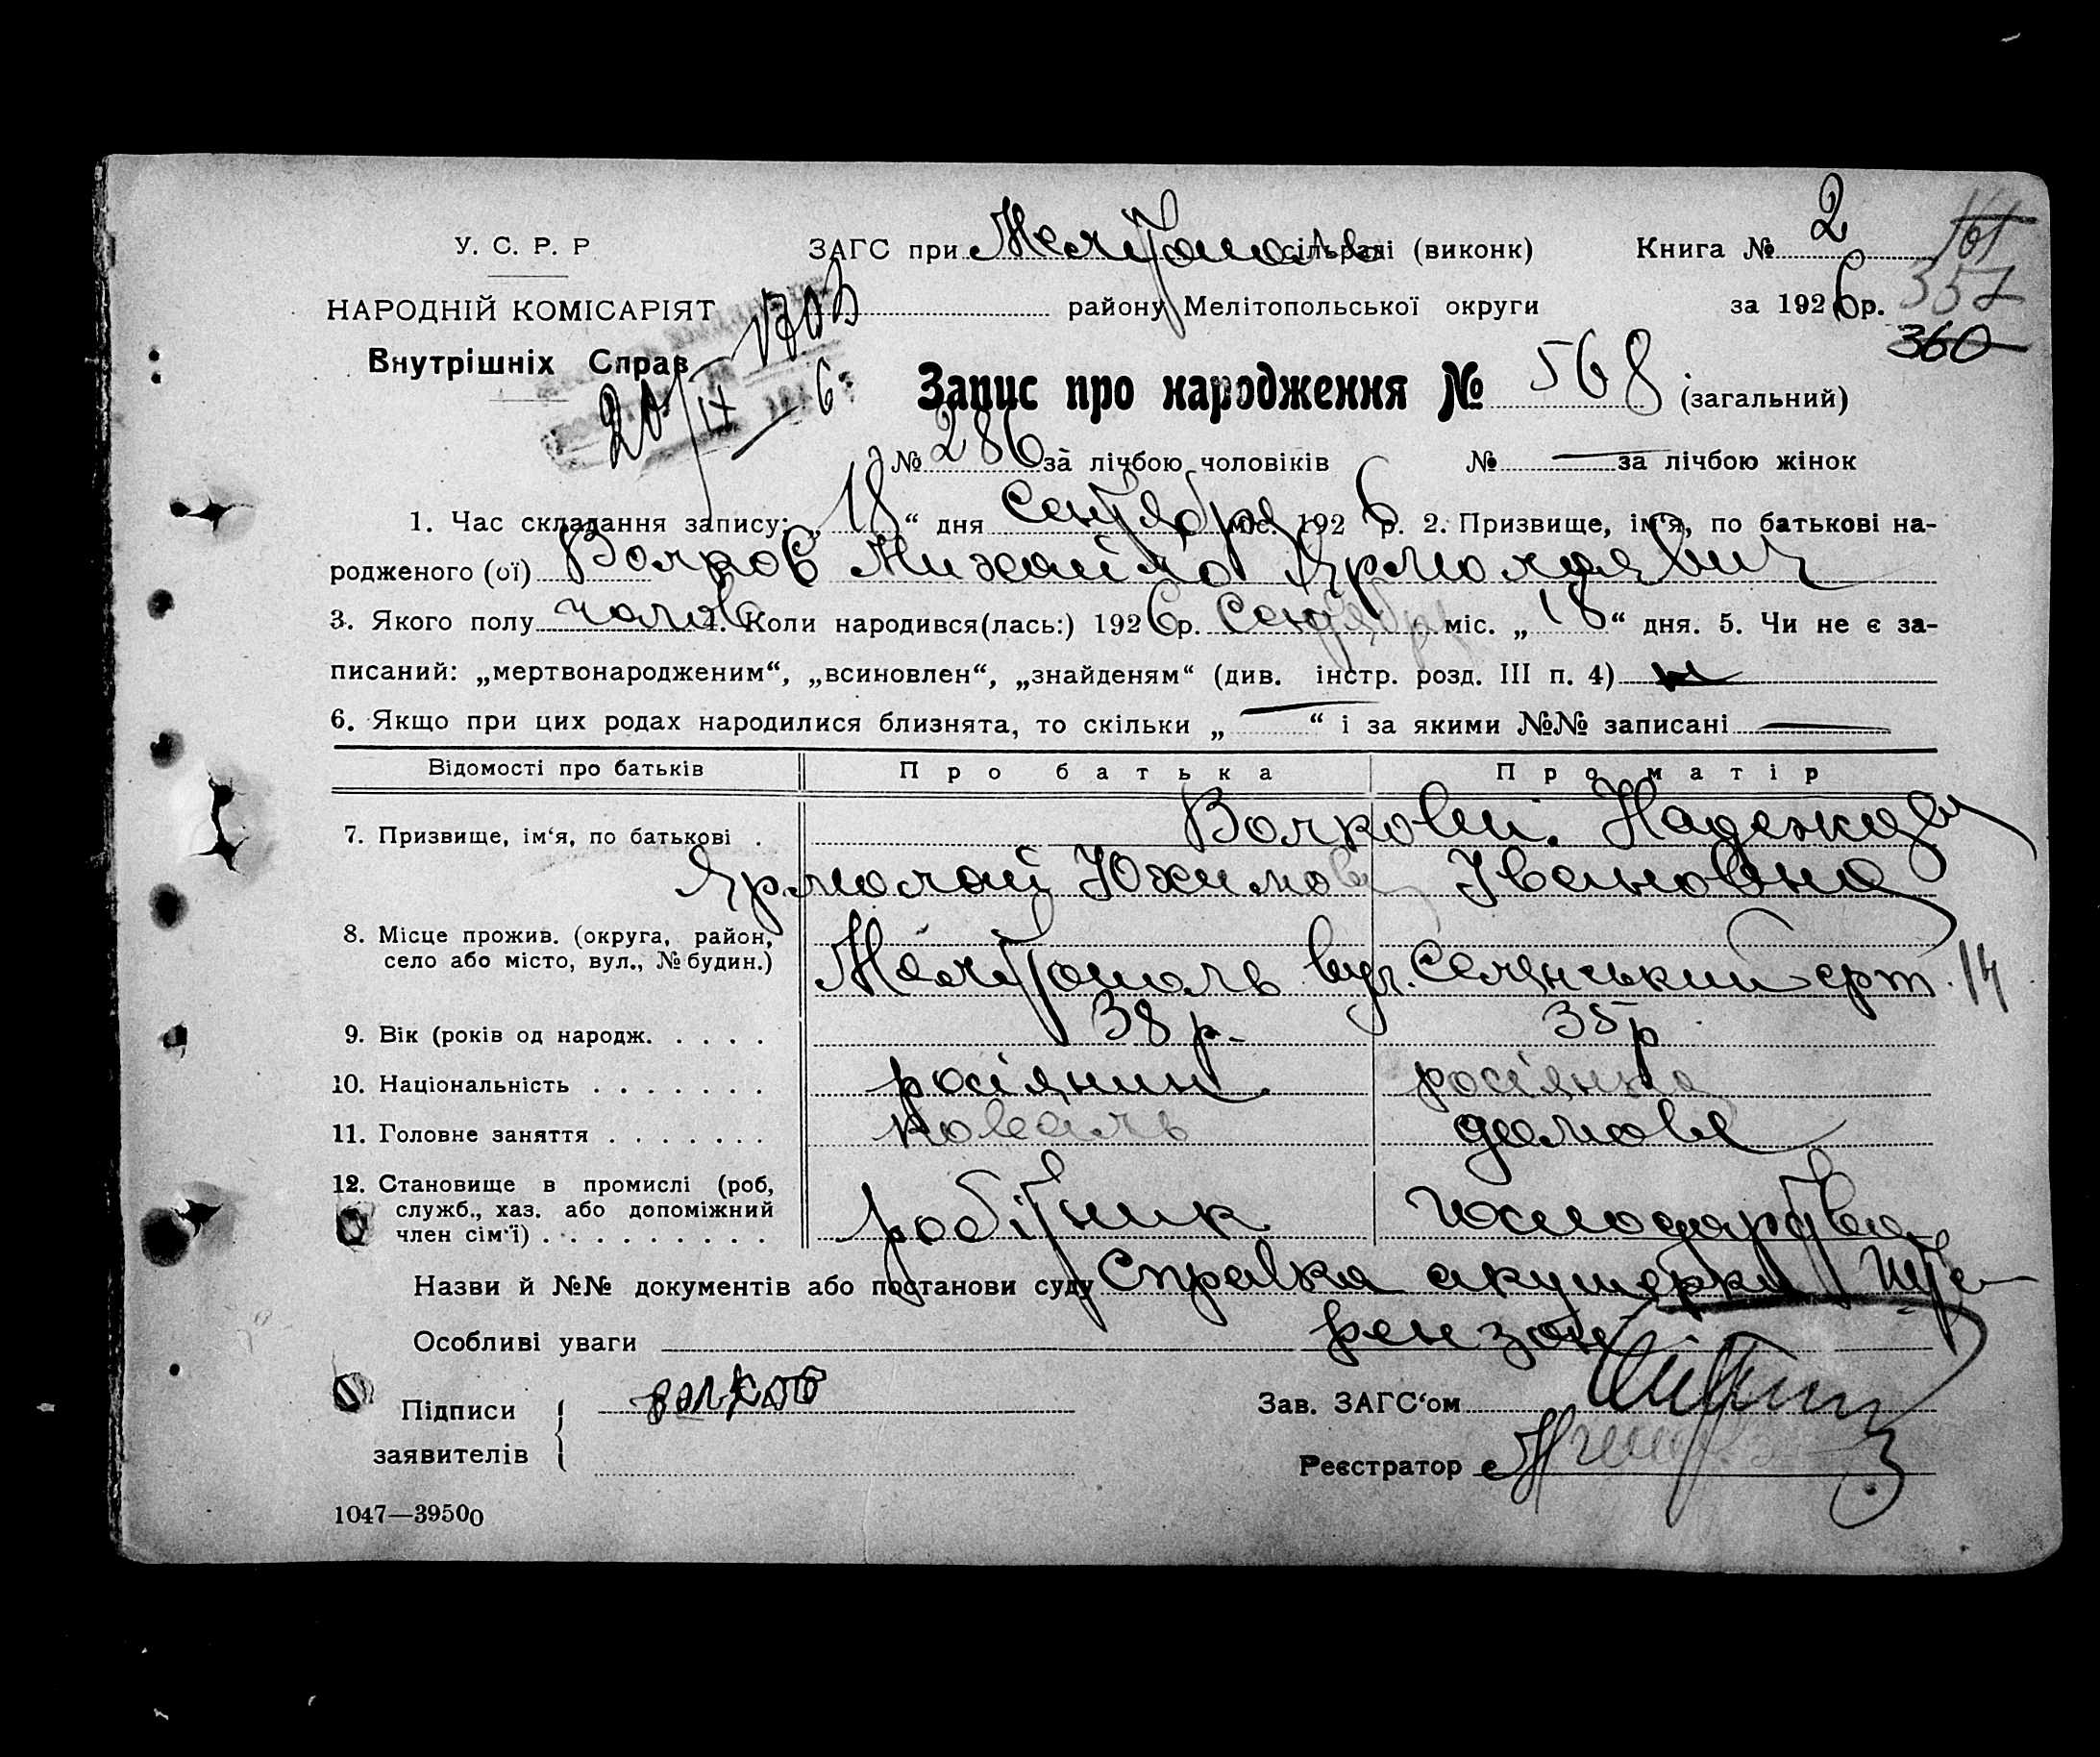 У. С. Р. Р ЗАГС при Мелітополь сільраді (виконк) Книга № 2 161
НАРОДНІЙ КОМІСАРІЯТ району Мелітопольської округи за 1926 р. 357
Внутрішніх Справ 360
20/IX 6
Запис про народження № 568 (загальний)
№ 286 за лічбою чоловіків № — за лічбою жінок
1. Час складання запису: „18“ дня Сентября міс. 1926 р. 2. Призвище, ім‘я, по батькові на-
родженого (ої) Волков Михайло Ярмолаєвич
3. Якого полу чолов 4. Коли народився(лась:) 1926 р. Сентября міс. „18“ дня. 5. Чи не є за-
писаний: „мертвонародженим“, „всиновлен“, „знайденям“ (див. інстр. розд. III п. 4)
6. Якщо при цих родах народилися близнята, то скільки „—“ і за якими №№ записані —
Відомості про батьків Про батька Про матір
7. Призвище, ім‘я, по батькові . Волкови. Надежда
Ярмолай Юхимов Івановна
8. Місце прожив. (округа, район,
село або місто, вул., № будин.) Мелітополь вул. Селянський 14
9. Вік (років од народж. . . . . 38 р. 35 р
10. Національність . . . . . . . росіянин росіянка
11. Головне заняття . . . . . . . коваль домове
12. Становище в промислі (роб,
служб., хаз. або допоміжний
член сім‘ї) . . . . . . . . . . робітник господарство
Назви й №№ документів або постанови суду Справка акушерки
Особливі уваги
Підписи волков Зав. ЗАГС‘ом
заявителів Реєстратор
1047—39500